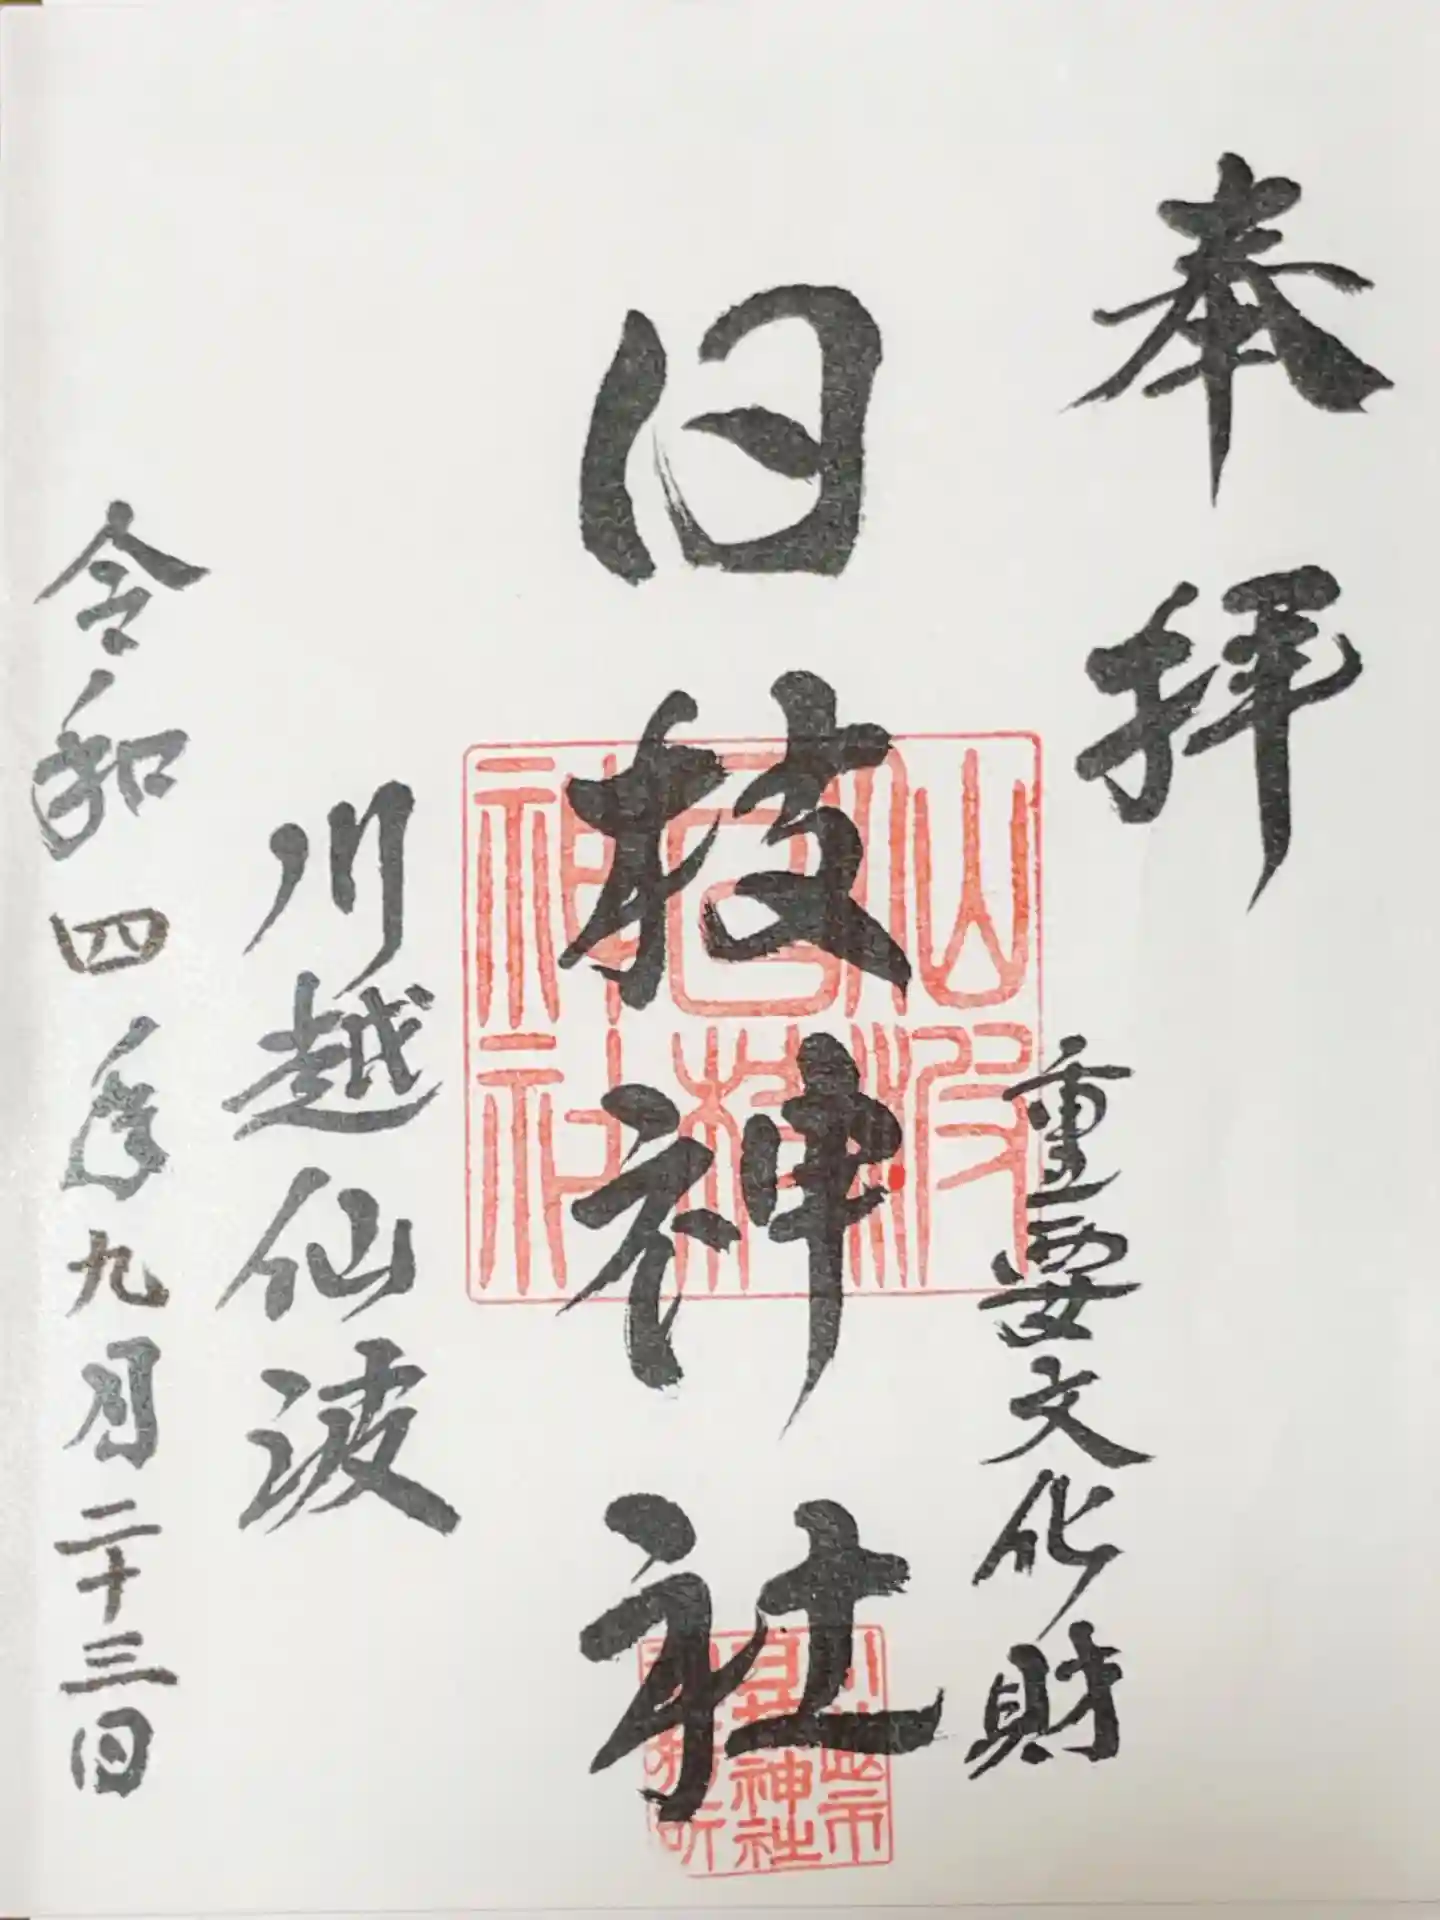 奉拝
重要文化財
日枝神社
川越仙波
令和四年九月二十三日
仙波
日枝
神社
川越市
日枝神社